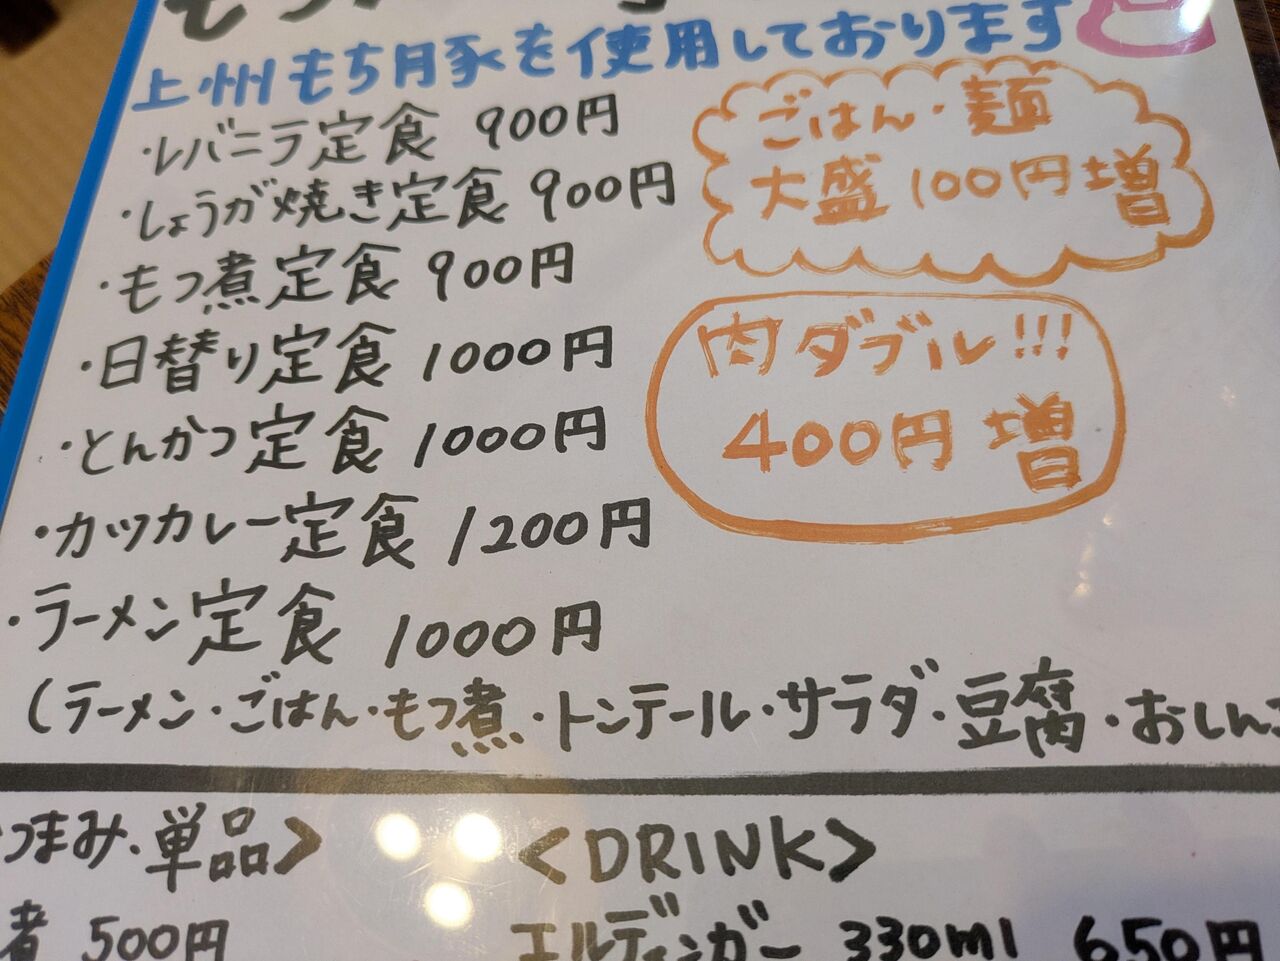 上州もち豚を使用しております
・レバニラ定食 900円
・しょうが焼き定食 900円
・もつ煮定食 900円
・日替り定食 1000円
・とんかつ定食 1000円
・カツカレー定食 1200円
・ラーメン定食 1000円
(ラーメン・ごはん・もつ煮・トンテール・サラダ・豆腐・おしん
ごはん・麺
大盛 100円増
肉ダブル!!!
400円増
つまみ、単品>
煮 500円
<DRINK>
エルディンガー 330ml 650円